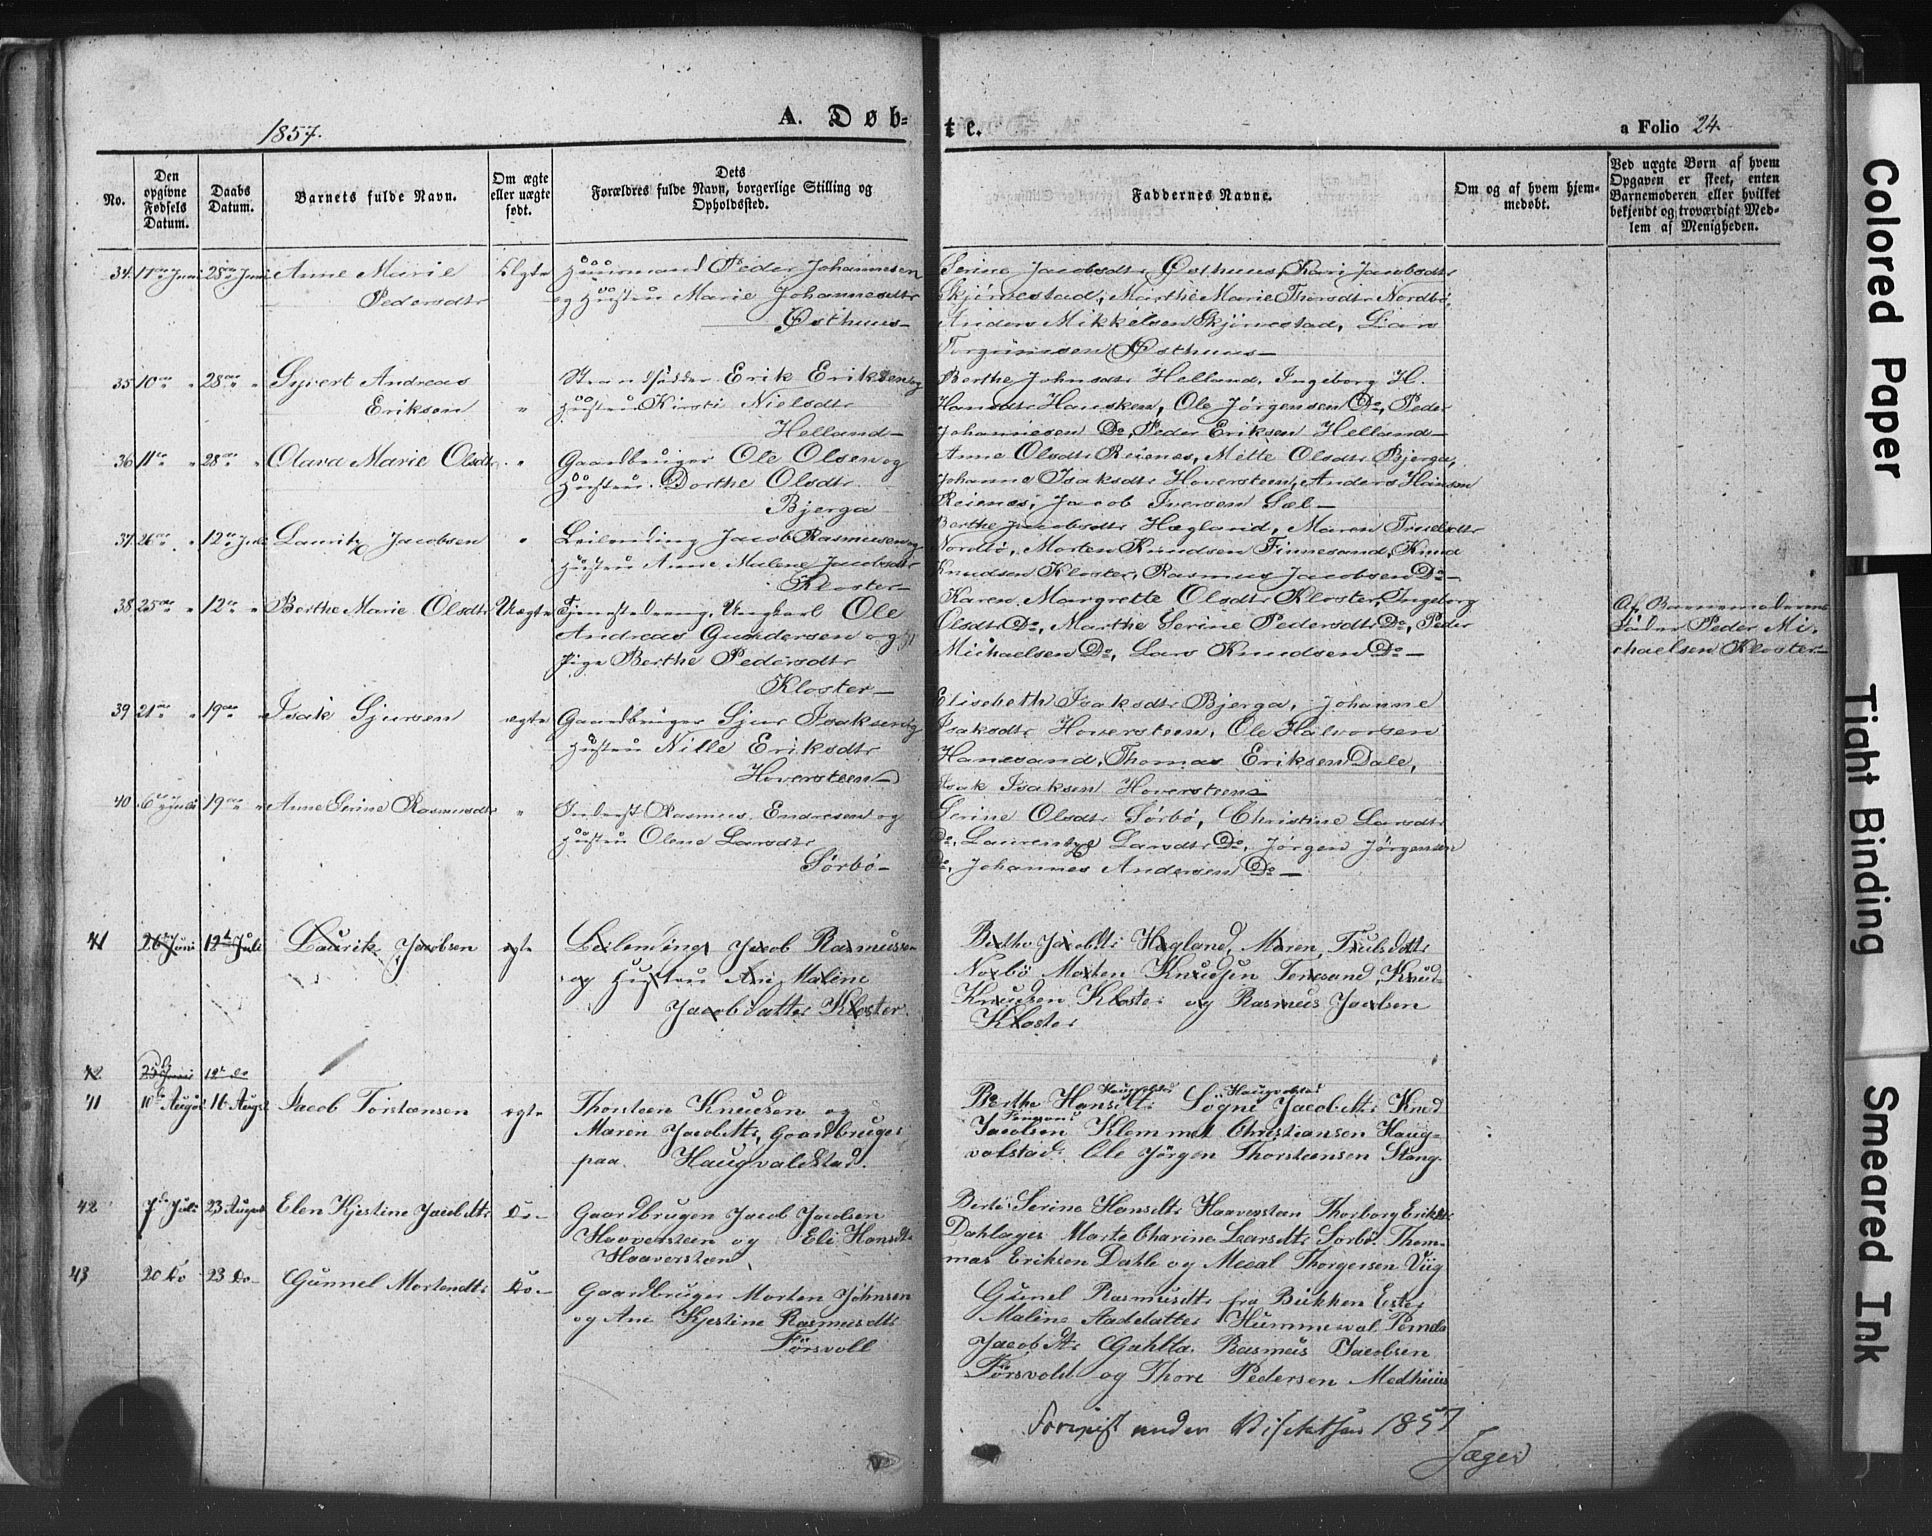 1857.
A. Døb=
te.
a Folio 24.
No.
Den opgivne Fødsels Datum.
Daabs Datum.
Barnets fulde Navn.
Om ægte eller uægte født.
Dets Forældres fulde Navn, borgerlige Stilling og Opholdssted.
Faddernes Navne.
Om og af hvem hjem-
medøbt.
Ved uægte Børn af hvem
Opgaven er skeet, enten
Barnemoderen eller hvilket
bekjendt og troværdigt Med-
lem af Menigheden.
34. 28de Juni Anne Marie Ægte Huusmand Peder Johannesen
Pedersdtr og Hustru Marie Johannesdtr
Østhuus—
Serine Jacobsdtr Østhuus, Kari Jacobsdtr
Skjørestad, Marthe Marie Thorsdtr Nordbø,
Anders Mikkelsen Skjørestad, Lars
Torgrimsen Østhuus—
35 10de " 28de " Syvert Andreas Strandsidder Erik Eriksen og
Eriksen " Hustru Kirsti Nielsdtr
Helland—
Berthe Johnsdtr Helland, Ingeborg H.
Hansdtr Hausken, Ole Jørgensen Do, Peder
Johannesen Do, Peder Eriksen Helland—
36 11te " 28de " Olava Marie Olsdtr " Gaardbruger Ole Olsen og
Hustru Dorthe Olsdtr
Bjerga
Anne Olsdtr Reienes, Mette Olsdtr Bjerga,
Johanne Isaksdtr Hoversteen, Anders Hansen
Reienes, Jacob Iversen Sæl—
37 26de " 12te Juli Lauritz Jacobsen " Leilending Jacob Rasmusen og
Hustru Anne Malene Jacobsdtr
Kloster—
Berthe Jacobsdtr Hægland, Maren Trulsdtr
Nordbø, Morten Knudsen Finnesand, Knud
Knudsen Kloster, Rasmus Jacobsen Do—
38 25de " 12te " Berthe Marie Olsdtr Uægte Tjenestedreng, Ungkarl Ole
Andreas Gundersen og
Pige Berthe Pedersdtr
Kloster—
Karen Margrette Olsdtr Kloster, Ingeborg
Olsdtr Do, Marthe Serine Pedersdtr Do, Peder
Michaelsen Do, Lars Knudsen Do—
Af Barnemoderens
Fader Peder Mi-
chaelsen Kloster—
39 21de " 19de " Isak Sjursen ægte Gaardbruger Sjur Isaksen og
Hustru Nille Eriksdtr
Hoversteen—
Elisebeth Isaksdtr Bjerga, Johanne
Isaksdtr Hoversteen, Ole Halvorsen
Hanesand, Thomas Eriksen Dale,
Isak Isaksen Hoversteen—
40 6te Juli 19de " Anne Serine Rasmusdtr " Inderst Rasmus Endresen og
Hustru Olene Larsdtr
Sørbø—
Serine Olsdtr Sørbø, Christine Larsdtr
Do, Larsdtr Do, Jørgen Jørgensen
Do, Johannes Andersen Do—
41 26de Juni 12te Juli Laurik Jacobsen ægte Leilending Jacob Rasmussen
og Hustru Ane Maline
Jacobsdatter Kloster.
Berthe Jacobdtr Hægland, Maren Trulsdattr
Norbø Morten Knudsen Fenesand, Knud
Knudsen Kloster og Rasmus Jacobsen
Kloster
42. 25de Juni 12te do
41 10de August 16 August Jacob Torstænsen ægte Thorsteen Knudsen og
Maren Jacobdtr, Gaardbruger
paa Haugvaldstad.
Berthe Hansdtr Haugvalstad Søgne Jacobdtr Haugvalstad Knud
Jacobsen Fenesand Klemmet Christiansen Haug=
valstad. Ole Jörgen Thorstænsen Stang
42 7de Juli 23 August Elen Kjestine Jacobdtr Do— Gaardbrugen Jacob Jacobsen
Haaversteen og Eli Hansdtr
Haaversteen
Berte Serine Hansdtr Haaversteen Thorborg Eriksdtr
Marte Larsdtr Sørbø. Thom-
mas Eriksen Dahle og Thorgersen Viig
43 20 Do 23 Do— Gunnel Mortendtr Do— Gaardbruger Morten Johnsen
og Ane Kjestine Rasmusdtr
Førsvoll
Gunel Rasmusdtr fra Bukken Ester
Maline Hummesval
Jacobdtr Rasmus Jacobsen
Førsvold og Thore Pedersen Medhuus
Foreviist under Visitatsen 1857
Jæger
Colored Paper
Tight Binding
Smeared Ink